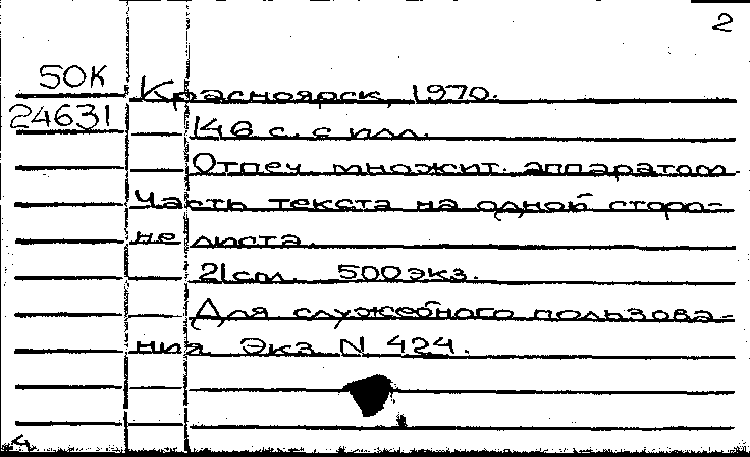 2
50К Красноярск, 1970.
24631 146 с. с илл.
Отпеч. множит. аппаратом
Часть текста на одной сторо-
не листа.
21см. 500 экз.
Для служебного пользова-
ния. Экз. N 424.
4